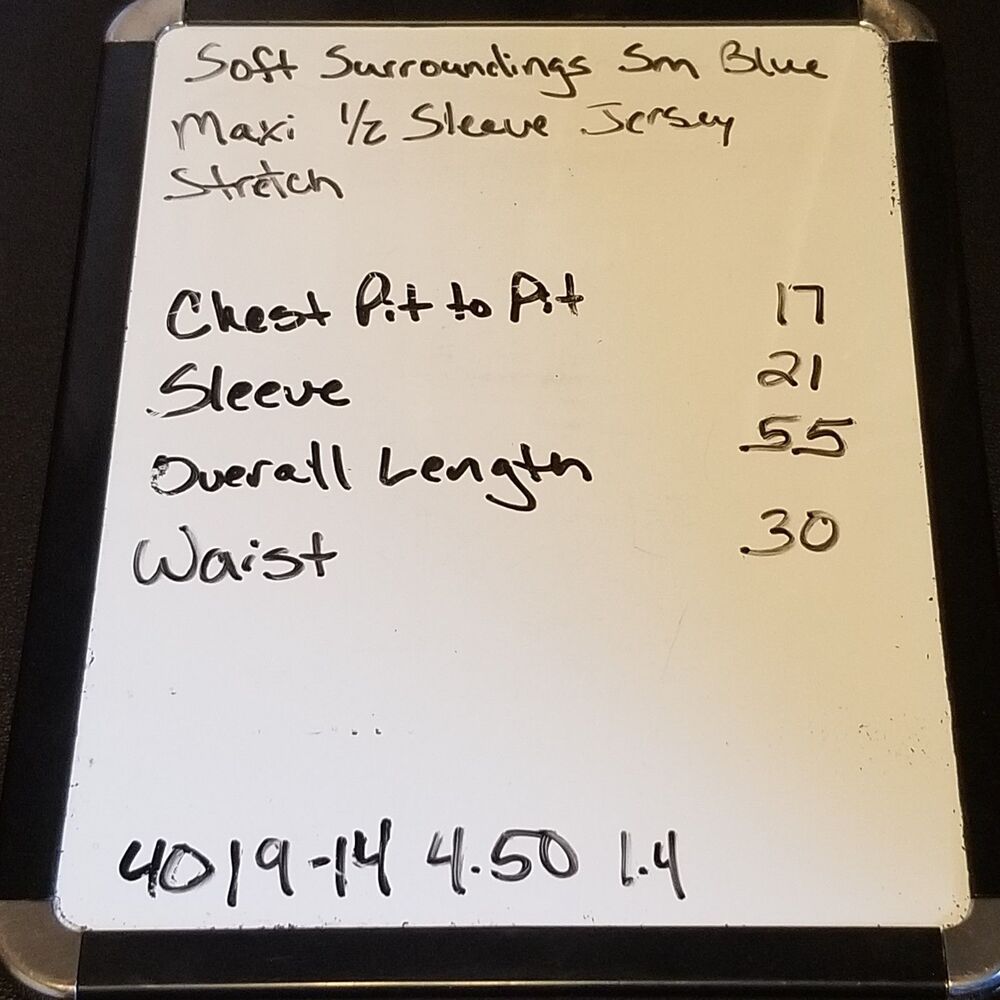 Soft Surroundings Sm Blue
Maxi 1/2 Sleeve Jersey
Stretch
Chest Pit to Pit 17
Sleeve 21
Overall Length 55
Waist 30
4019-14 4.50 1.4